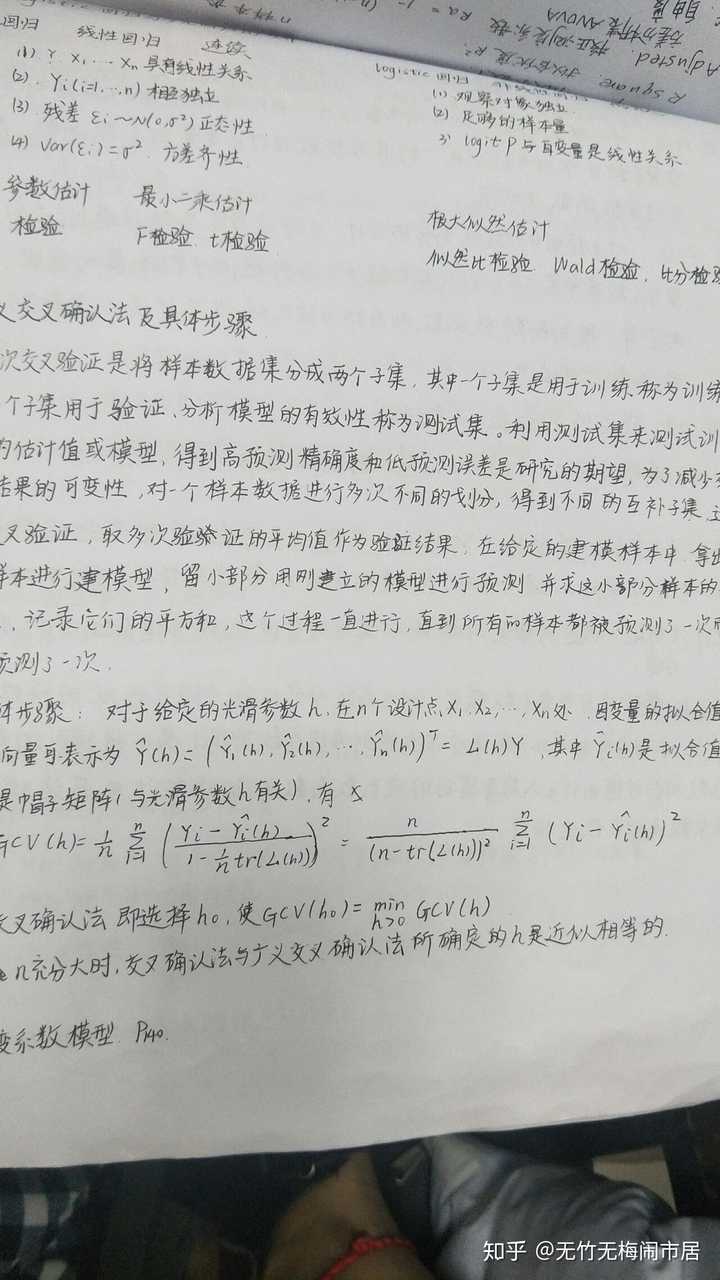 回归 线性回归 连续
(1) Y X₁ … Xn 具有线性关系
(2) Yi(i=1,…,n) 相互独立
(3) 残差 εi~N(0,σ²) 正态性
(4) Var(εi)=σ² 方差齐性
参数估计 最小二乘估计
检验 F检验 t检验
R square. 拟合优度 R².
Adjusted 校正决定系数
方差分析表 ANOVA
自由度
logistic 回归
(1) 观察对象独立
(2) 足够的样本量
3) logit P 与自变量是线性关系
极大似然估计
似然比检验 Wald检验, 比分检验
义交叉确认法及具体步骤
次交叉验证是将样本数据集分成两个子集, 其中一个子集是用于训练称为训练
个子集用于验证、分析模型的有效性称为测试集。利用测试集来测试训
的估计值或模型, 得到高预测精确度和低预测误差是研究的期望, 为了减少
结果的可变性, 对一个样本数据进行多次不同的划分, 得到不同的互补子集
叉验证, 取多次验证的平均值作为验证结果. 在给定的建模样本中 拿出
样本进行建模型, 留小部分用刚建立的模型进行预测 并求这小部分样本的
, 记录它们的平方和, 这个过程一直进行, 直到所有的样本都被预测了一次
预测了一次.
体步骤: 对于给定的光滑参数 h, 在n个设计点 X₁ X₂, …, Xn处 因变量的拟合值
向量可表示为 Ŷ(h) = (Ŷ₁(h), Ŷ₂(h), …, Ŷn(h))ᵀ = L(h)Y, 其中 Ŷi(h)是拟合值
是帽子矩阵(与光滑参数h有关), 有
GCV(h) = 1/n Σ_{i=1}^{n} ((Yi − Ŷi(h))/(1 − 1/n tr(L(h))))² = n/(n−tr(L(h)))² Σ_{i=1}^{n} (Yi − Ŷi(h))²
交叉确认法 即选择 h₀, 使 GCV(h₀) = min_{h>0} GCV(h)
n充分大时, 交叉确认法与广义交叉确认法所确定的h是近似相等的.
变系数模型. P140.
知乎 @无竹无梅闹市居